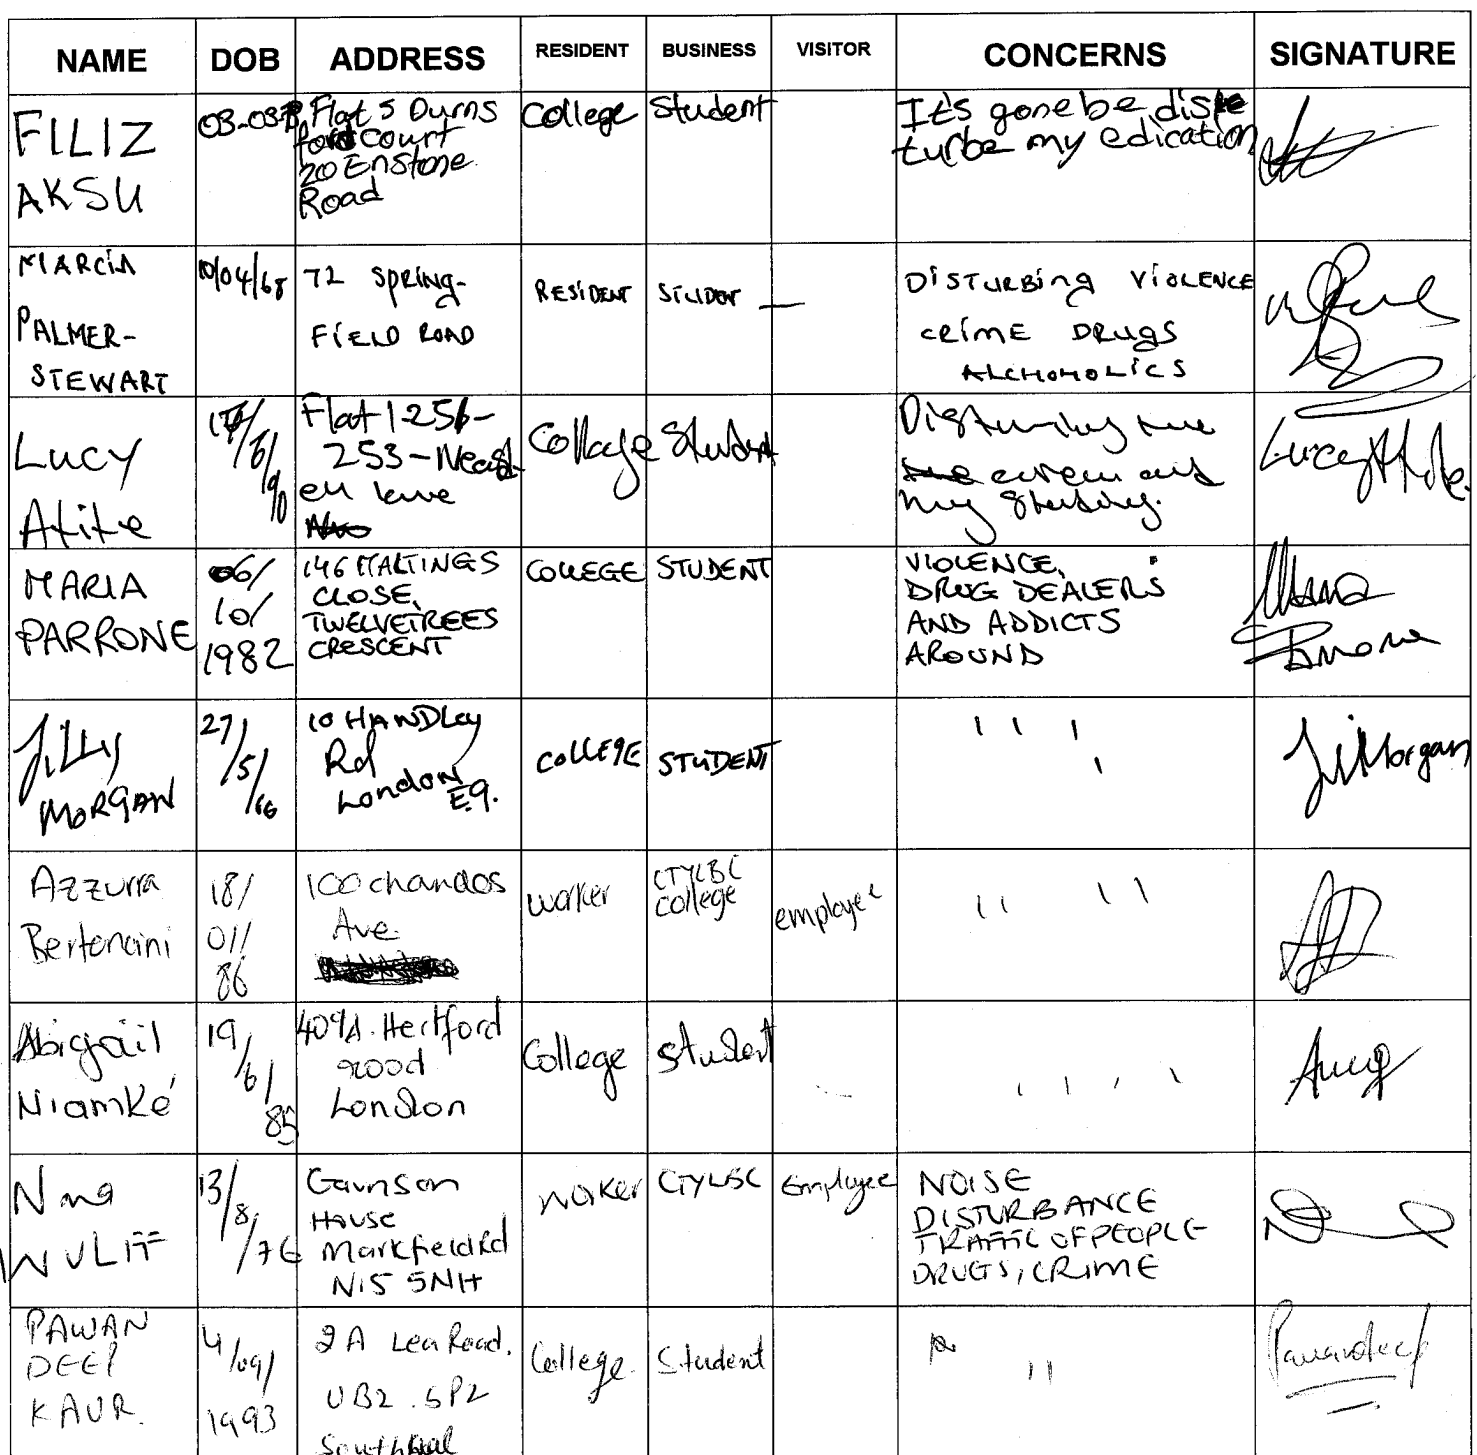 NAME DOB ADDRESS RESIDENT BUSINESS VISITOR CONCERNS SIGNATURE
FILIZ
AKSU
03-03-
Flat 5 Durns
ford court
20 Enstone
Road
College
Student
It's gone be dis
turbe my edication
MARCIA
PALMER-
STEWART
10/04/68
72 SPRING-
FIELD ROAD
RESIDENT
STUDENT
DISTURBING VIOLENCE
CRIME DRUGS
ALCHOHOLICS
LUCY
Atite
17/
6/
90
Flat 1-251-
253-
College
Student
Disturbing
my studying.
Lucy Atite.
MARIA
PARRONE
06/
10/
1982
146 MALTINGS
CLOSE,
TWELVETREES
CRESCENT
COLLEGE
STUDENT
VIOLENCE,
DRUG DEALERS
AND ADDICTS
AROUND
Maria
Parrone
JILLY
MORGAN
27/
/5/
/66
10 HANDLEY
Rd
London
E9.
COLLEGE
STUDENT
" "
J Morgan
Azzurra
Bertoncini
18/
01/
86
100 chandos
Ave
worker
CTYLBC
College
employee
" "
Abigail
Niamké
19/
/6/
85
409A. Hertford
road
London
College
Student
" "
Nina
WULFF
13/
/8/
/76
Gaunson
House
Markfield Rd
N15 5NH
WORKER
CTYLBC
Employee
NOISE
DISTURBANCE
TRAFFIC OF PEOPLE
DRUGS, CRIME
PAWAN
DEEP
KAUR.
4/
/09/
1993
2A Lea Road.
UB2 5PZ
Southall
College.
Student
"
Pawandeep